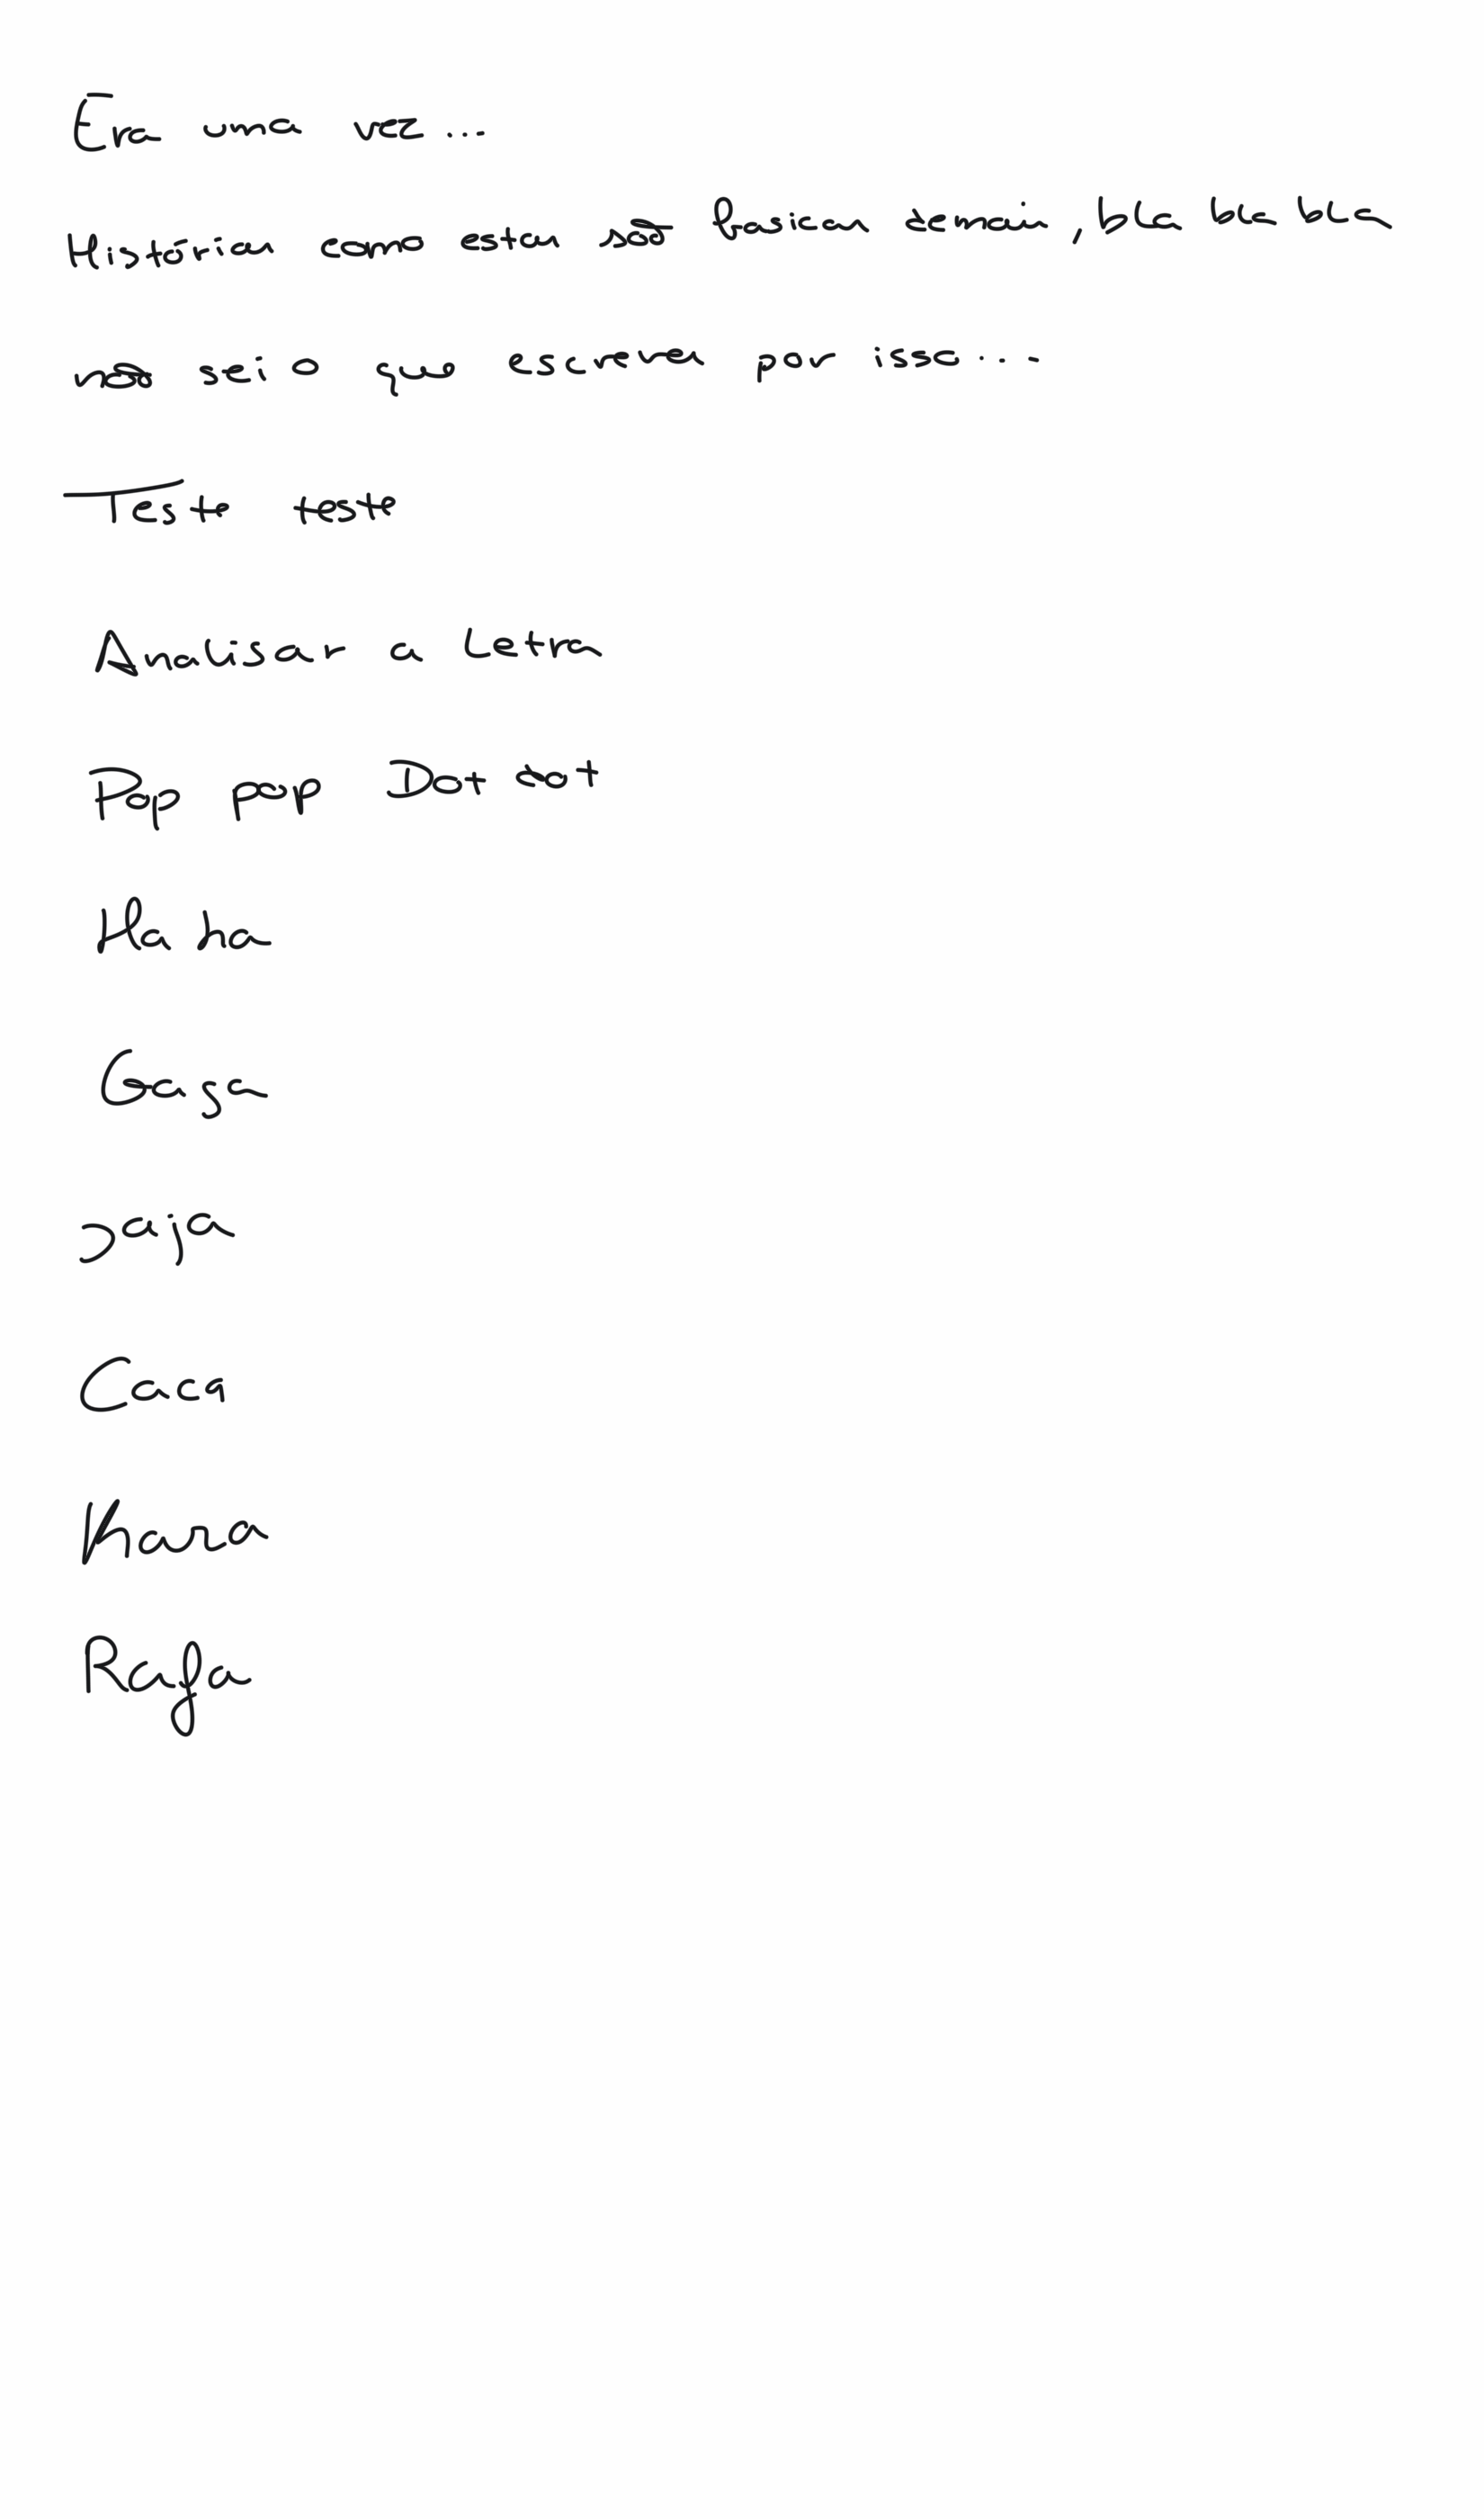 Era uma vez...
Histórias como esta são basica demais, bla bla bla
não sei o que escrever por isso...
Teste teste
Analisar a letra
Pop pop Dot dot
Ha ha
Gaga
Jaja
Caca
Kara
Rafa